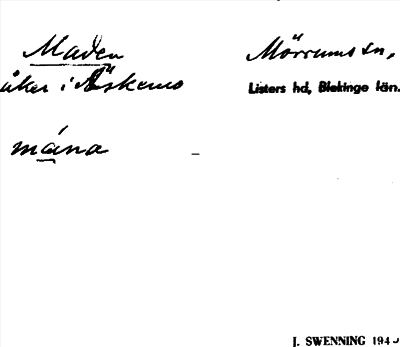 Maden
Mörrums sn,
åker i Åskemo
Listers hd, Blekinge län.
mána
J. SWENNING 194